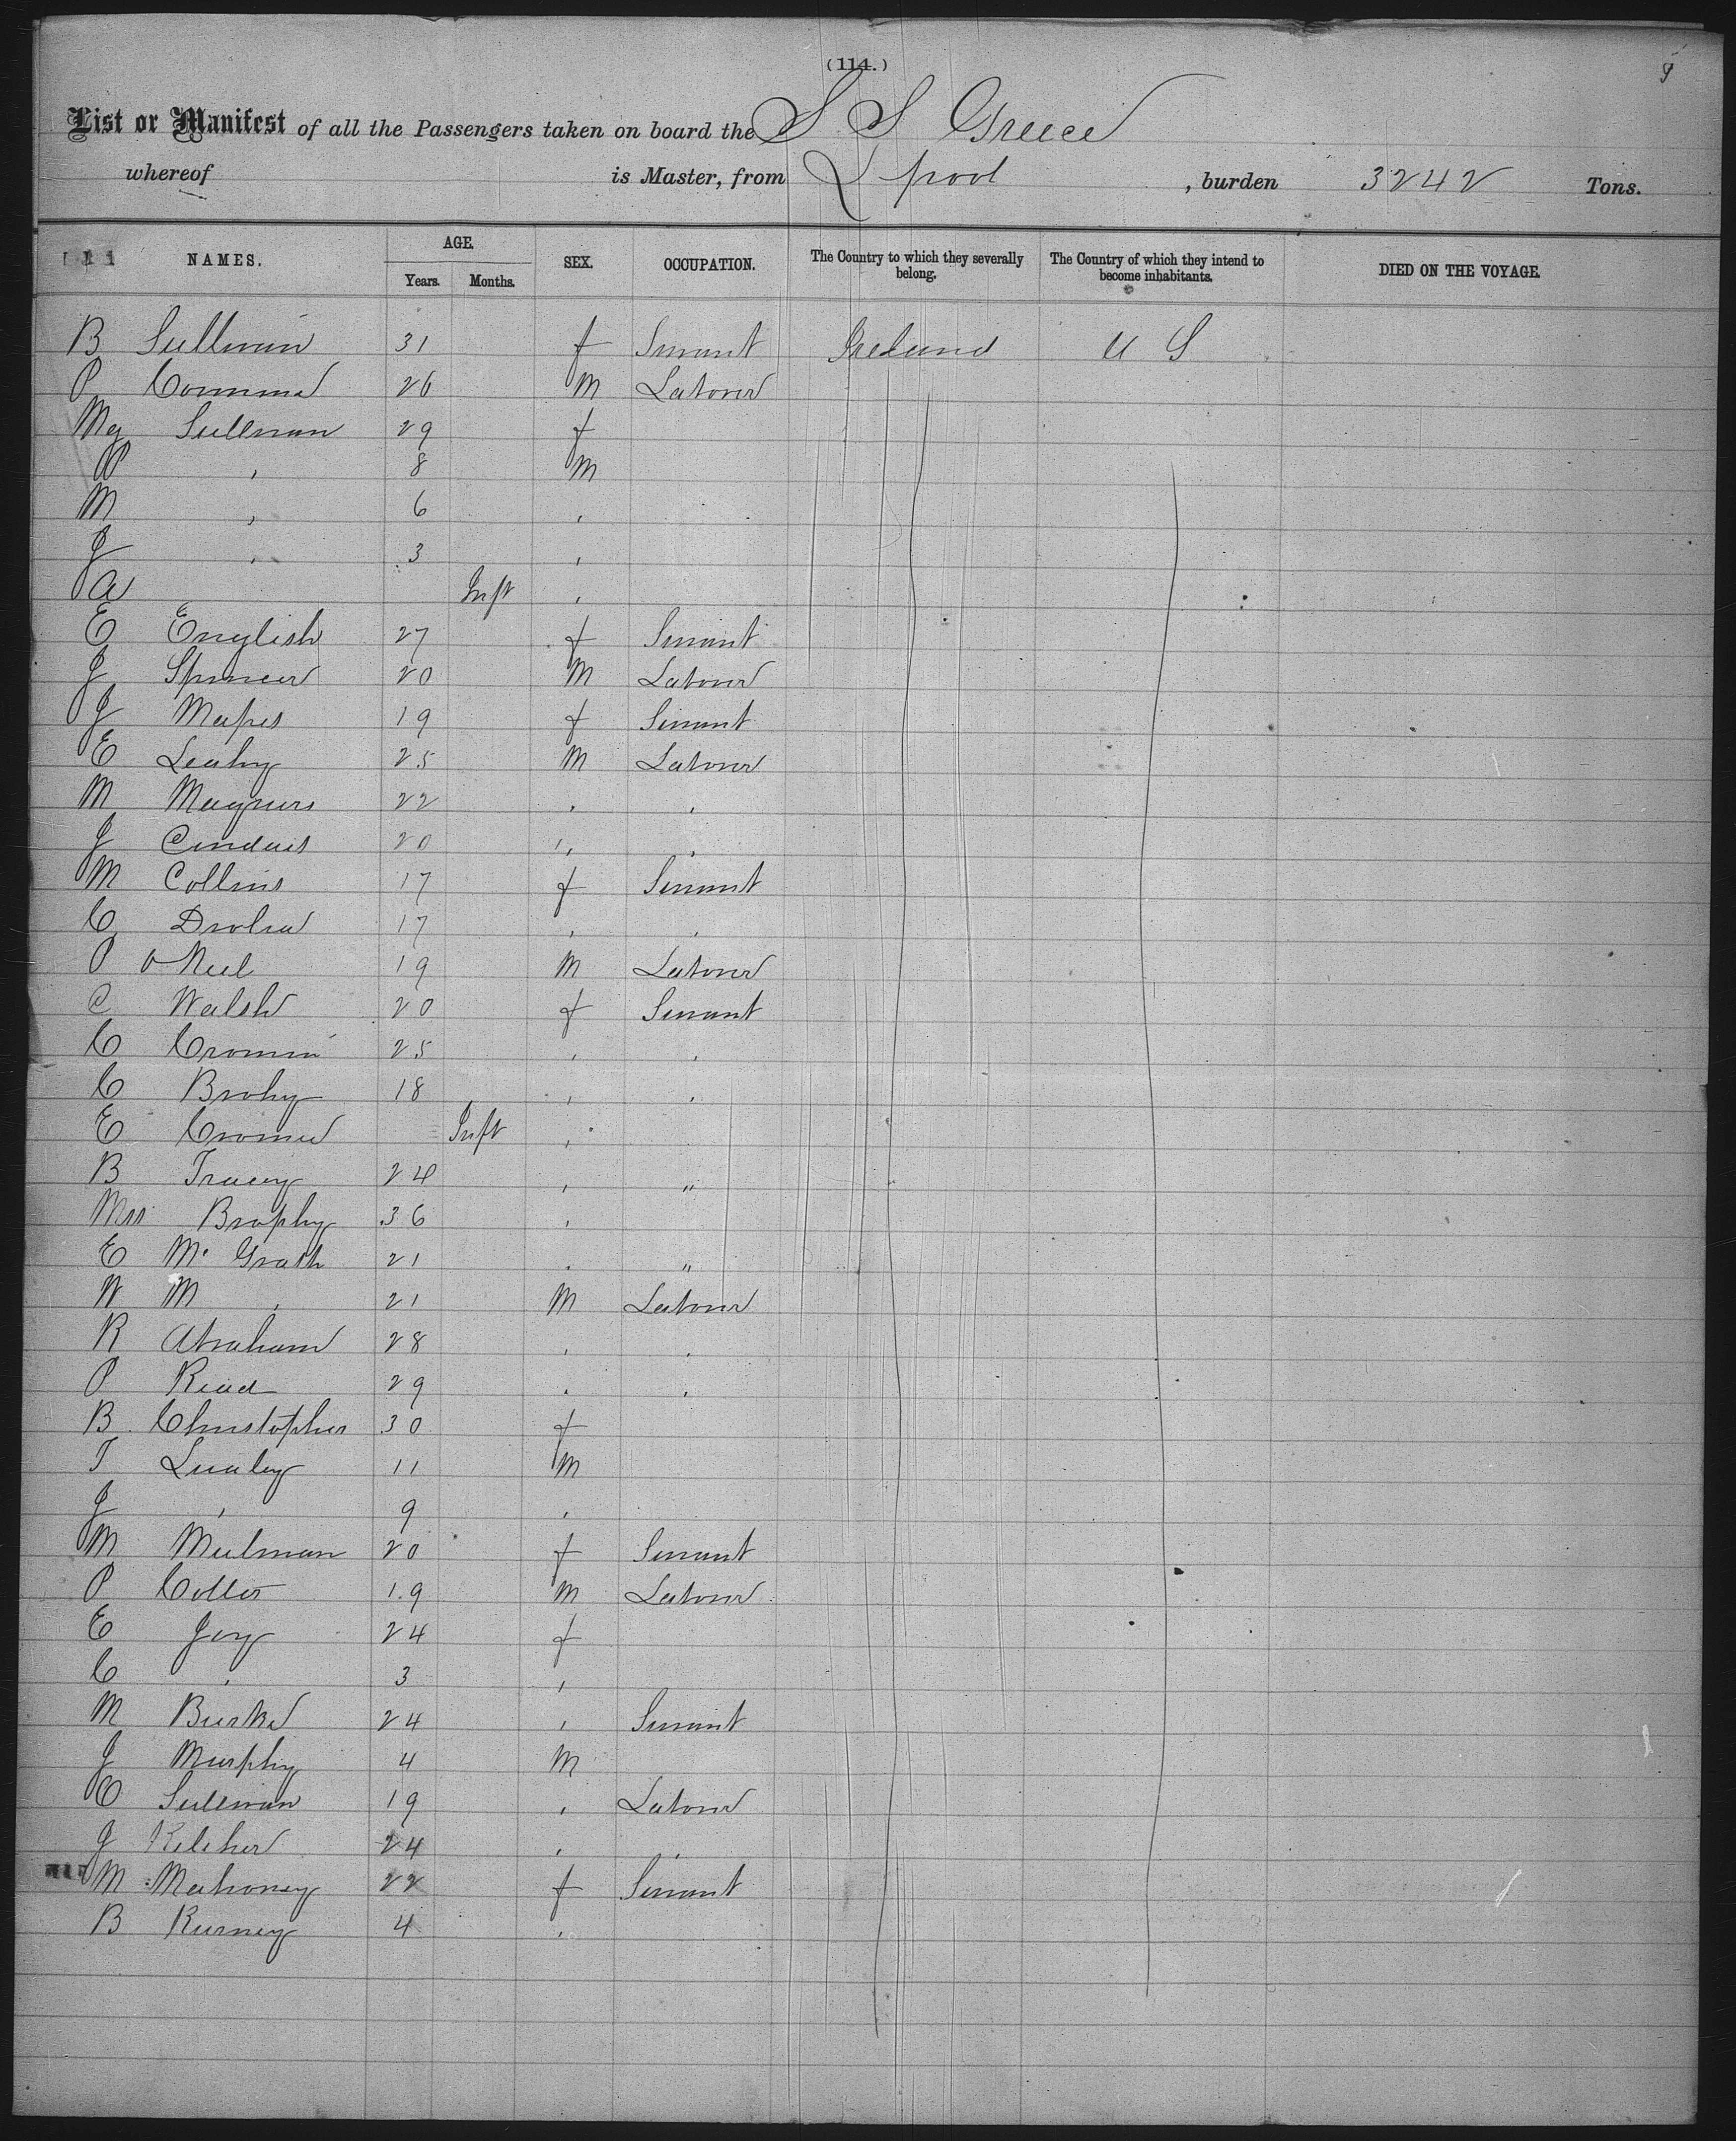 (114.)
List or Manifest of all the Passengers taken on board the S S Greece
whereof is Master, from L'pool, burden 3242 Tons.
NAMES. AGE. Years. Months. SEX. OCCUPATION. The Country to which they severally belong. The Country of which they intend to become inhabitants. DIED ON THE VOYAGE.
B Sullivan 31 f Servant Ireland U S
P 26 M Labourer
Mg Sullivan 29 f
P , 8 M
M , 6 ,
J , 3 ,
A Inft ,
E English 27 f Servant
J Spencer 20 M Labourer
J Mapes 19 f Servant
E Leahy 25 M Labourer
M Magners 22 , ,
J 20 ,, ,
M Collins 17 f Servant
C 17 , ,
P o Neil 19 M Labourer
C Walsh 20 f Servant
C Cronin 25 , ,
C Brohy 18 , ,
E Inft ,
B Tracey 24 , "
Mrs Brophy 36 ,
E Mc Grath 21 , "
W M , 21 M Labourer
R Abraham 28 , ,
P Read 29 , ,
B Christopher 30 f
T 11 M
J , 9 ,
M 20 f Servant
P Cotter 19 M Labourer
E Joy 24 f
C , 3 ,
M Burke 24 , Servant
J Murphy 4 M
C Sullivan 19 , Labourer
J Keleher 24 , ,
M Mahoney 22 f Servant
B 4 ,